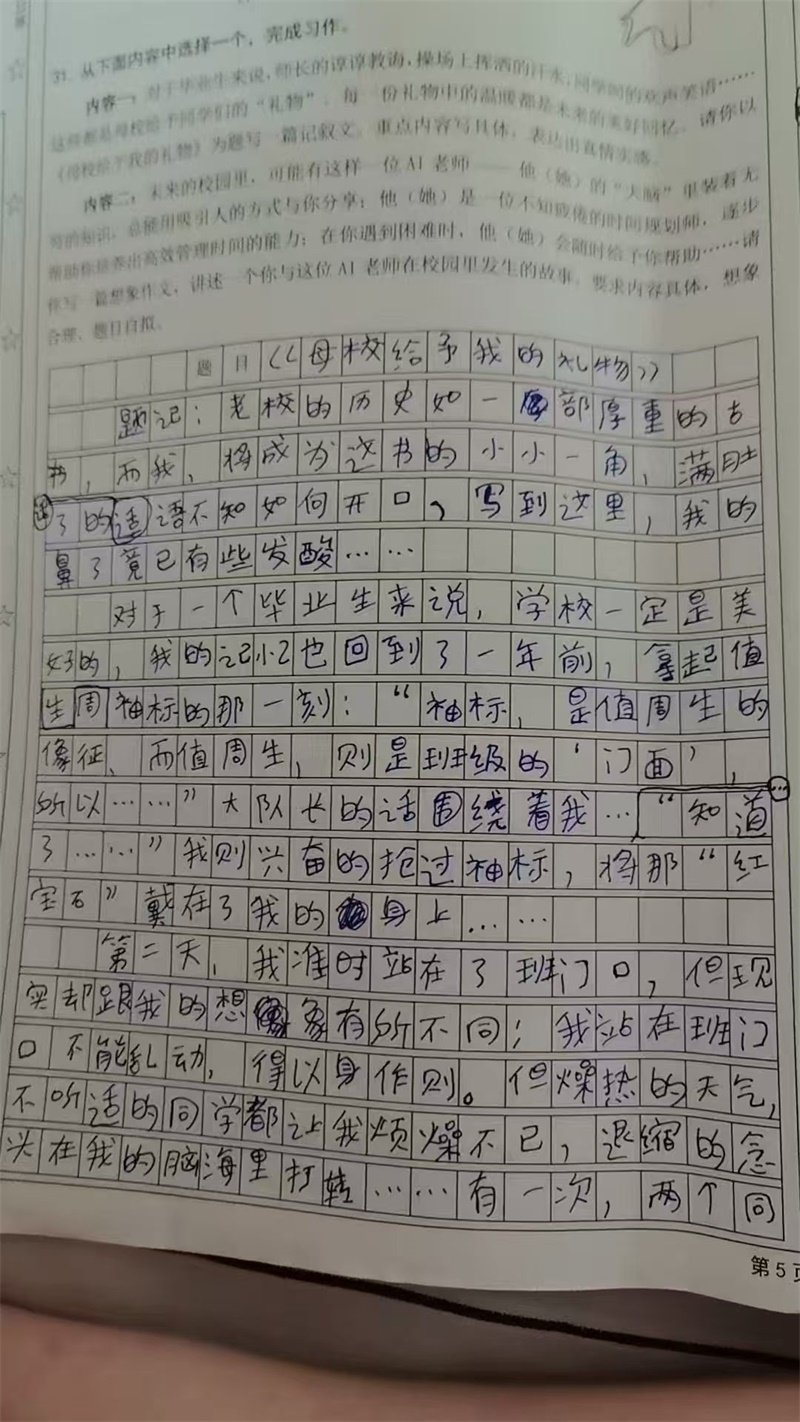 31. 从下面内容中选择一个，完成习作。
内容一：对于毕业生来说，师长的谆谆教诲，操场上挥洒的汗水，同学间的欢声笑语……
这些都是母校给予同学们的“礼物”。每一份礼物中的温暖都是未来的美好回忆。请你以
《母校给予我的礼物》为题写一篇记叙文。重点内容写具体，表达出真情实感。
内容二：未来的校园里，可能有这样一位AI老师——他（她）的“大脑”里装着无
穷的知识，总能用吸引人的方式与你分享；他（她）是一位不知疲倦的时间规划师，逐步
帮助你培养出高效管理时间的能力；在你遇到困难时，他（她）会随时给予你帮助……请
你写一篇想象作文，讲述一个你与这位AI老师在校园里发生的故事。要求内容具体，想象
合理，题目自拟。
题目《母校给予我的礼物》
题记：老校的历史如一部厚重的古
书，而我，将成为这书的小小一角，满肚
了的话语不知如何开口，写到这里，我的
鼻了竟已有些发酸……
对于一个毕业生来说，学校一定是美
好的，我的记忆也回到了一年前，拿起值
生周袖标的那一刻：“袖标，是值周生的
像征、而值周生，则是班级的‘门面’，
所以……”大队长的话围绕着我…“知道
了……”我则兴奋的抢过袖标，将那“红
宝石”戴在了我的身上……
第二天，我准时站在了班门口，但现
实却跟我的想象有所不同；我站在班门
口不能乱动，得以身作则。但燥热的天气，
不听话的同学都让我烦燥不已，退缩的念
头在我的脑海里打转……有一次，两个同
第5页